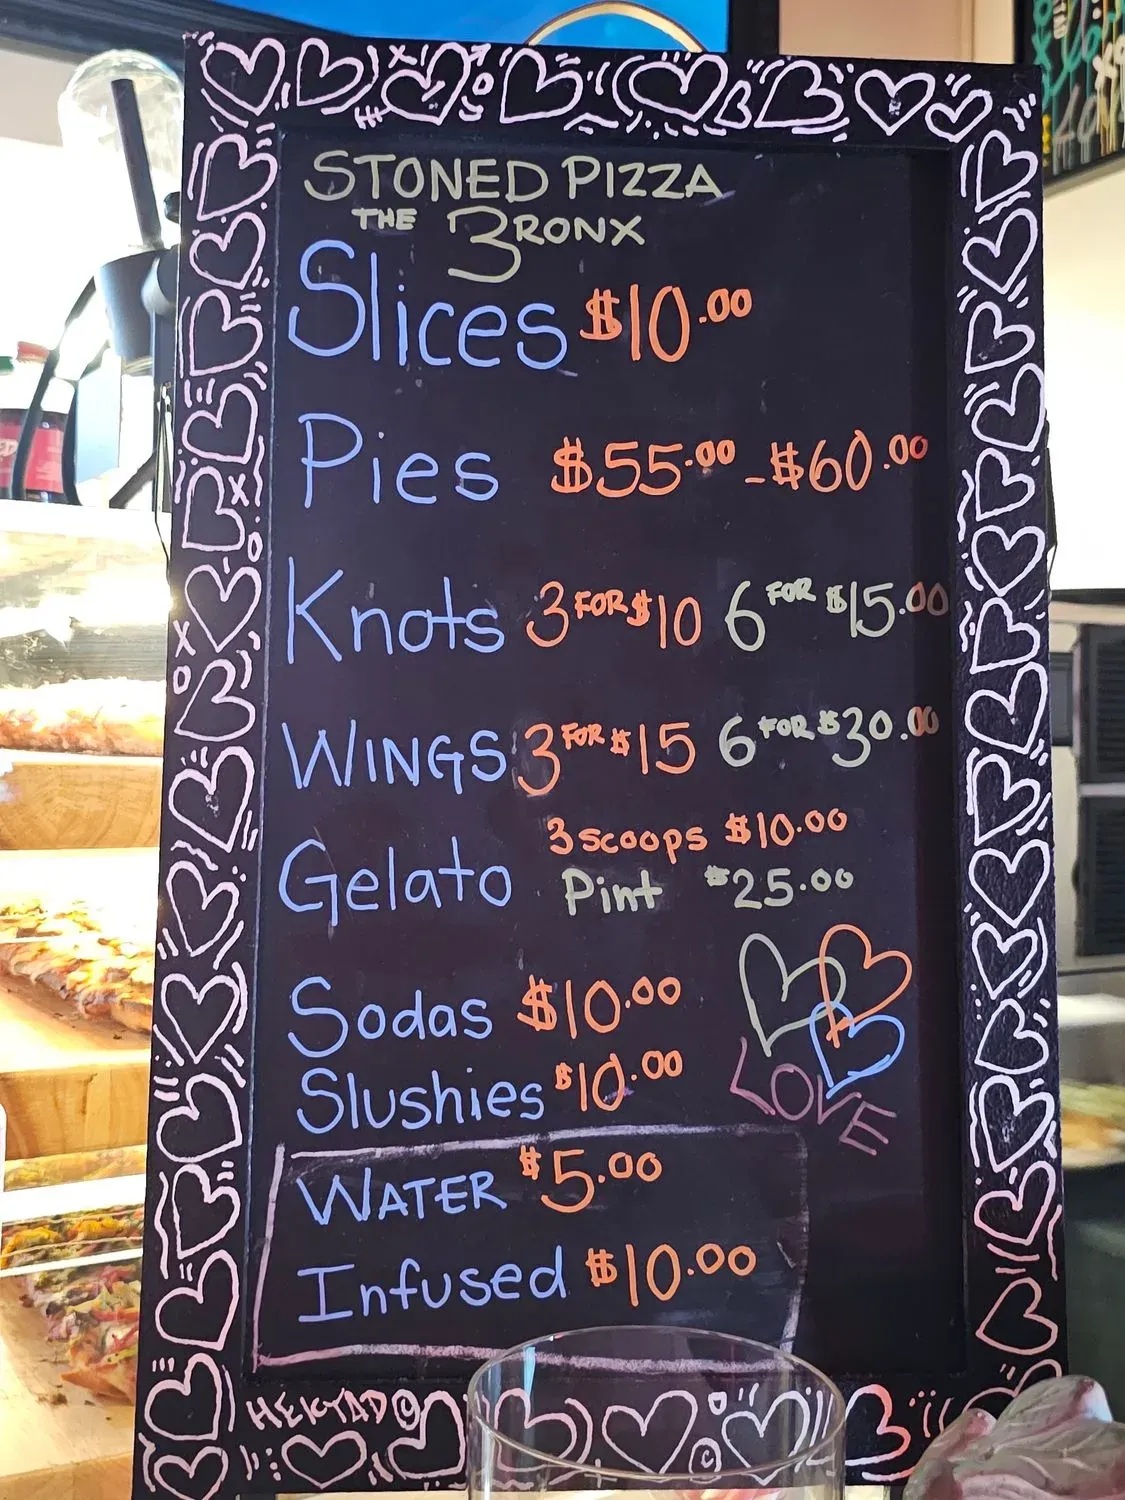 STONED PIZZA
THE BRONX
Slices $10.00
Pies $55.00 - $60.00
Knots 3 FOR $10 6 FOR $15.00
WINGS 3 FOR $15 6 FOR $30.00
Gelato 3 scoops $10.00
Pint $25.00
Sodas $10.00
Slushies $10.00
LOVE
WATER $5.00
Infused $10.00
HEKTAD